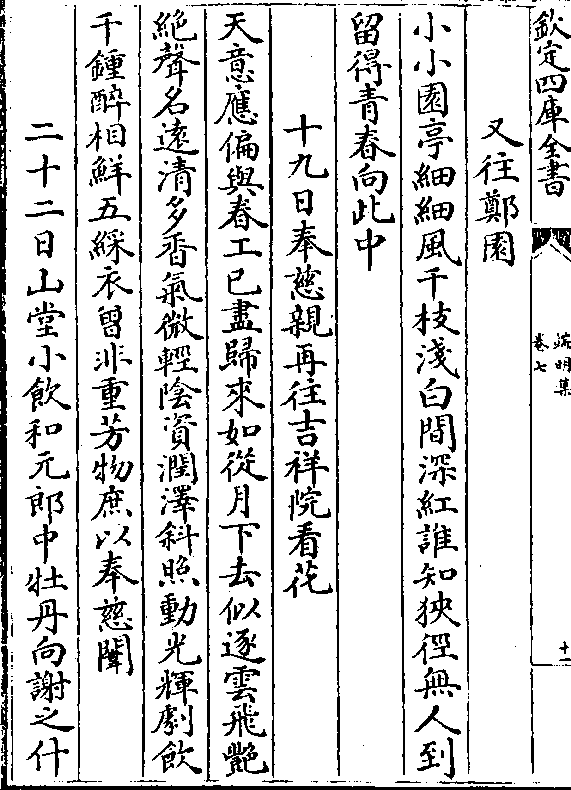 欽定四庫全書
端明集
卷七
十一
又往鄭園
小小園亭細細風千枝淺白間深紅誰知狹徑無人到
留得青春向此中
十九日奉慈親再往吉祥院看花
天意應偏與春工已盡歸來如從月下去似逐雲飛艷
絶聲名遠清多香氣微輕陰資潤澤斜照動光輝劇飲
千鍾醉相鮮五綵衣曽非重芳物庶以奉慈闈
二十二日山堂小飲和元郎中牡丹向謝之什